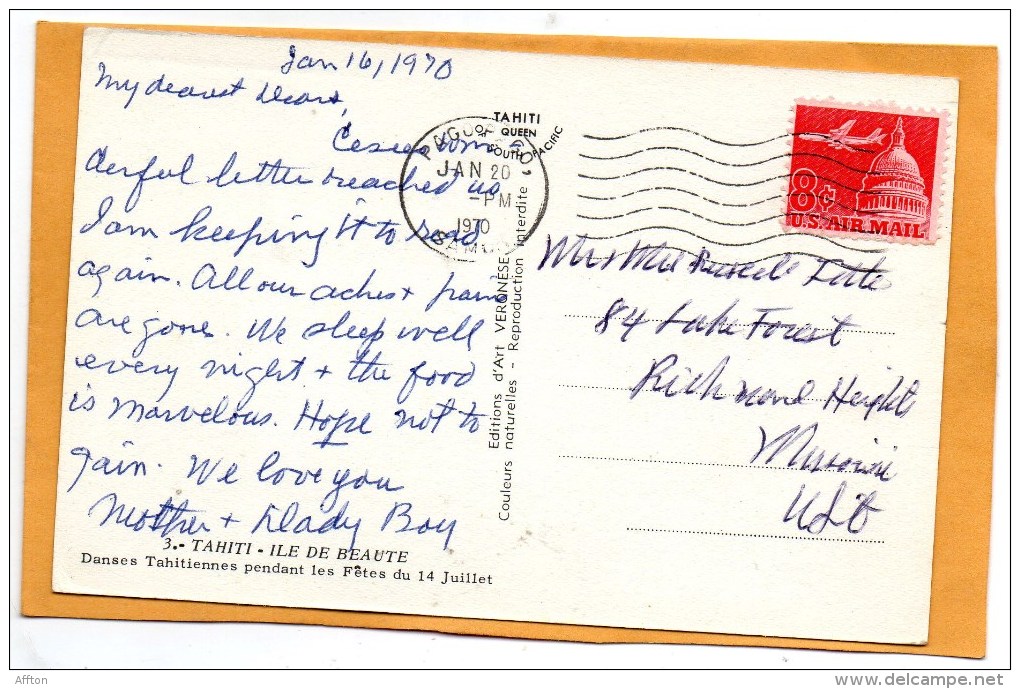 Jan 16, 1970
My dearest Dears,
derful letter reached us
I am keeping it to read
again. All our aches + pains
are gone. We sleep well
every night + the food
is marvelous. Hope not to
gain. We love you
Mother + Dady Boy
3.- TAHITI - ILE DE BEAUTE
Danses Tahitiennes pendant les Fêtes du 14 Juillet
TAHITI
QUEEN
OF
SOUTH PACIFIC
PAGO PAGO
JAN 20
-PM
1970
SAMOA
Editions d'Art VERONESE
Couleurs naturelles - Reproduction interdite
8¢
U.S. AIR MAIL
Mr + Mrs Russell
84 Lake Forest
Richmond Heights
Missouri
USA
Affton
www.delcampe.net